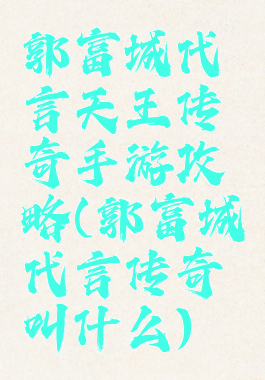 郭富城代
言天王传
奇手游攻
略(郭富城
代言传奇
叫什么)